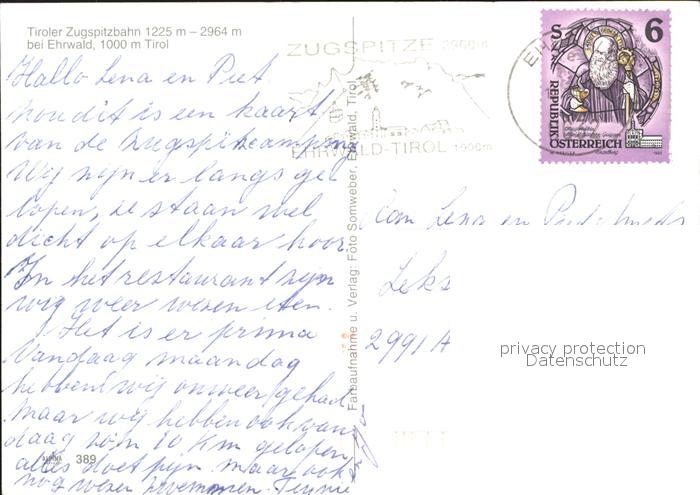 Tiroler Zugspitzbahn 1225 m – 2964 m
bei Ehrwald, 1000 m Tirol
Hallo Lena en Piet
nou dit is een kaart
van de Zugspitzcamping
Wij zijn er langs ge
lopen, ze staan wel
dicht op elkaar hoor.
In het restaurant zijn
wij weer wezen eten.
Het is er prima
Vandaag maandag
hebben wij onweer gehad
maar wij hebben ook van
daag zo'n 10 km gelopen
alles doet pijn maar ook
nog wezen zwemmen. Tennie
ZUGSPITZE 2960m
EHRWALD-TIROL 1000m
EH
S 6
REPUBLIK
ÖSTERREICH
Farbaufnahme u. Verlag: Foto Somweber, Ehrwald, Tirol
389
Lena en Piet
Leks
2991 A
privacy protection
Datenschutz